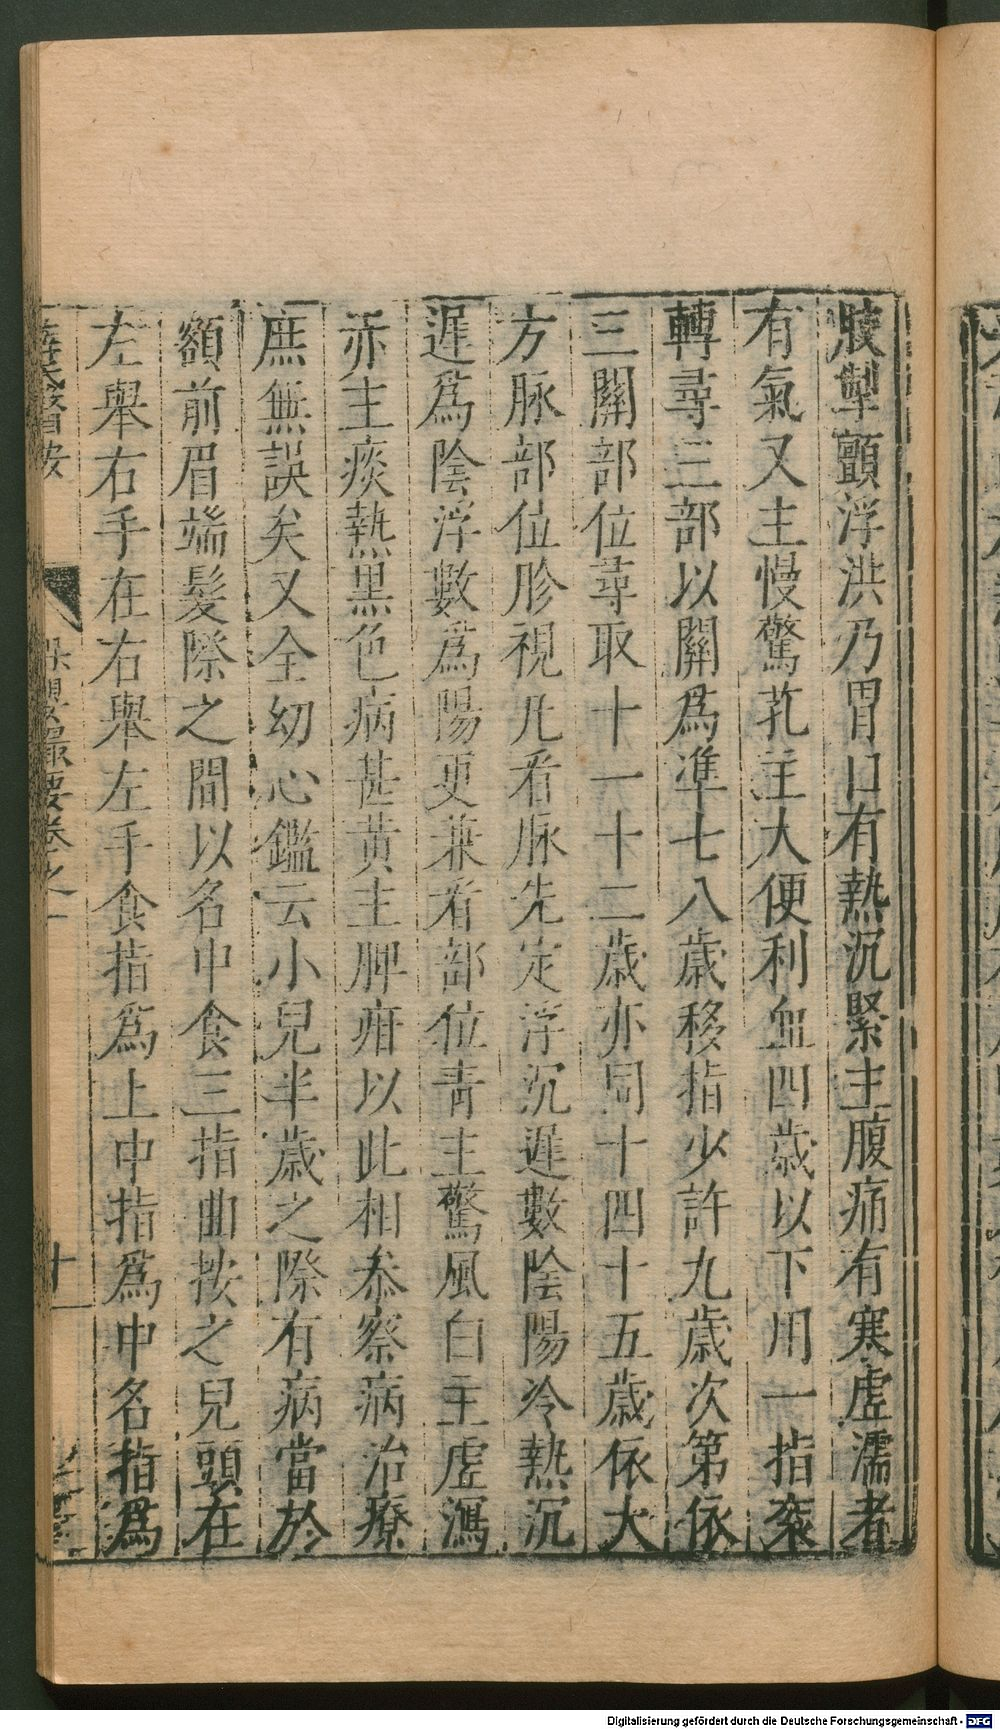 瘈掣顫浮洪乃胃口有熱沉緊主腹痛有寒虛濡者
有氣又主慢驚芤主大便利血四歲以下用一指衮
轉尋三部以關爲準七八歲移指少許九歲次第依
三關部位尋取十一十二歲亦同十四十五歲依大
方脉部位胗視凡看脉先定浮沉遲數陰陽冷熱沉
遲爲陰浮數爲陽更兼看部位青主驚風白主虛瀉
赤主痰熱黑色病甚黃主脾疳以此相叅察病治療
庶無誤矣又全幼心鑑云小兒半歲之際有病當於
額前眉端髮際之間以名中食三指曲按之兒頭在
左舉右手在右舉左手食指爲上中指爲中名指爲
薛氏醫按
保嬰撮要卷之一
十
Digitalisierung gefördert durch die Deutsche Forschungsgemeinschaft - DFG